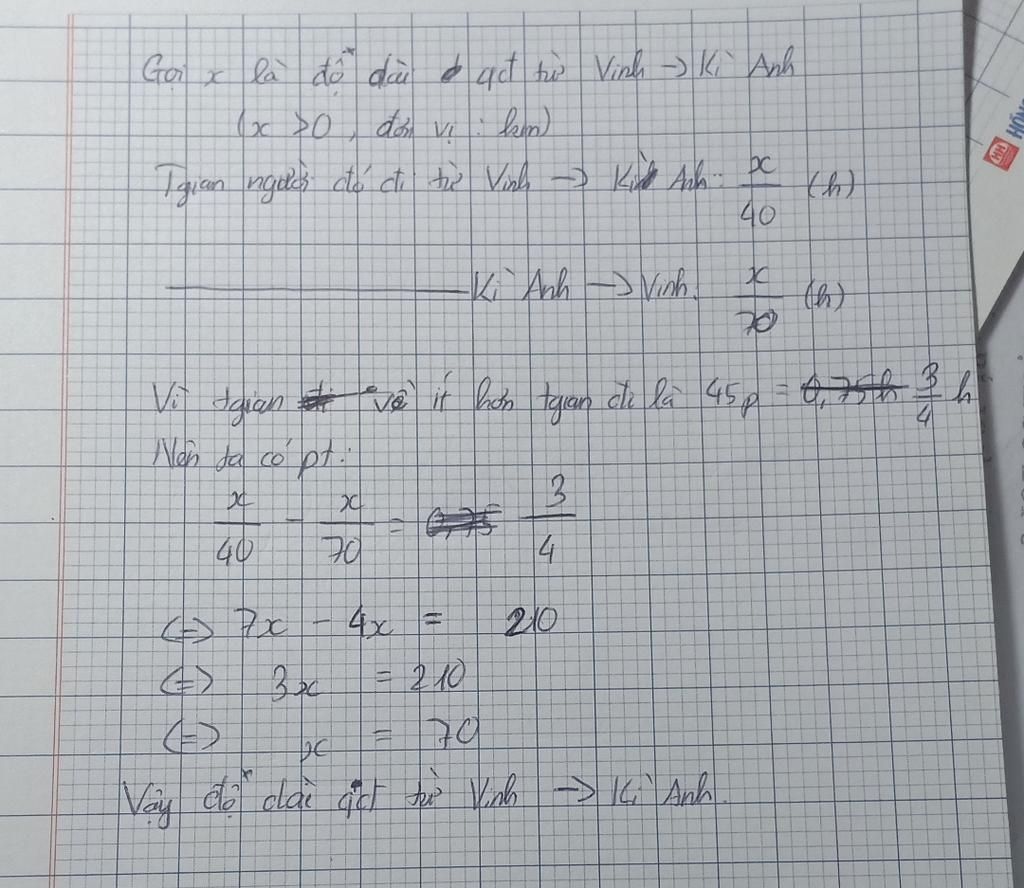 Gọi x là độ dài qđ từ Vinh → Kì Anh
(x > 0, đơn vị : km)
Tgian người đó đi từ Vinh → Kì Anh: x/40 (h)
———— Kì Anh → Vinh: x/70 (h)
Vì tgian về ít hơn tgian đi là 45p = 3/4 h
Nên ta có pt:
x/40 - x/70 = 3/4
<=> 7x - 4x = 210
<=> 3x = 210
<=> x = 70
Vậy độ dài qđ từ Vinh → Kì Anh.
HỒN